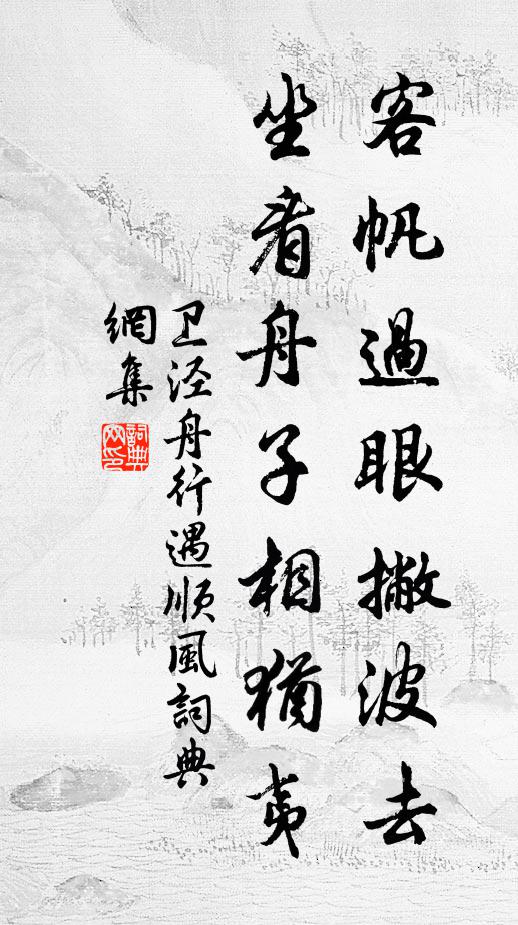 客帆過眼撇波去
坐看舟子相犹夷
卫泾舟行遇顺風詞典
網集
詞典
网印